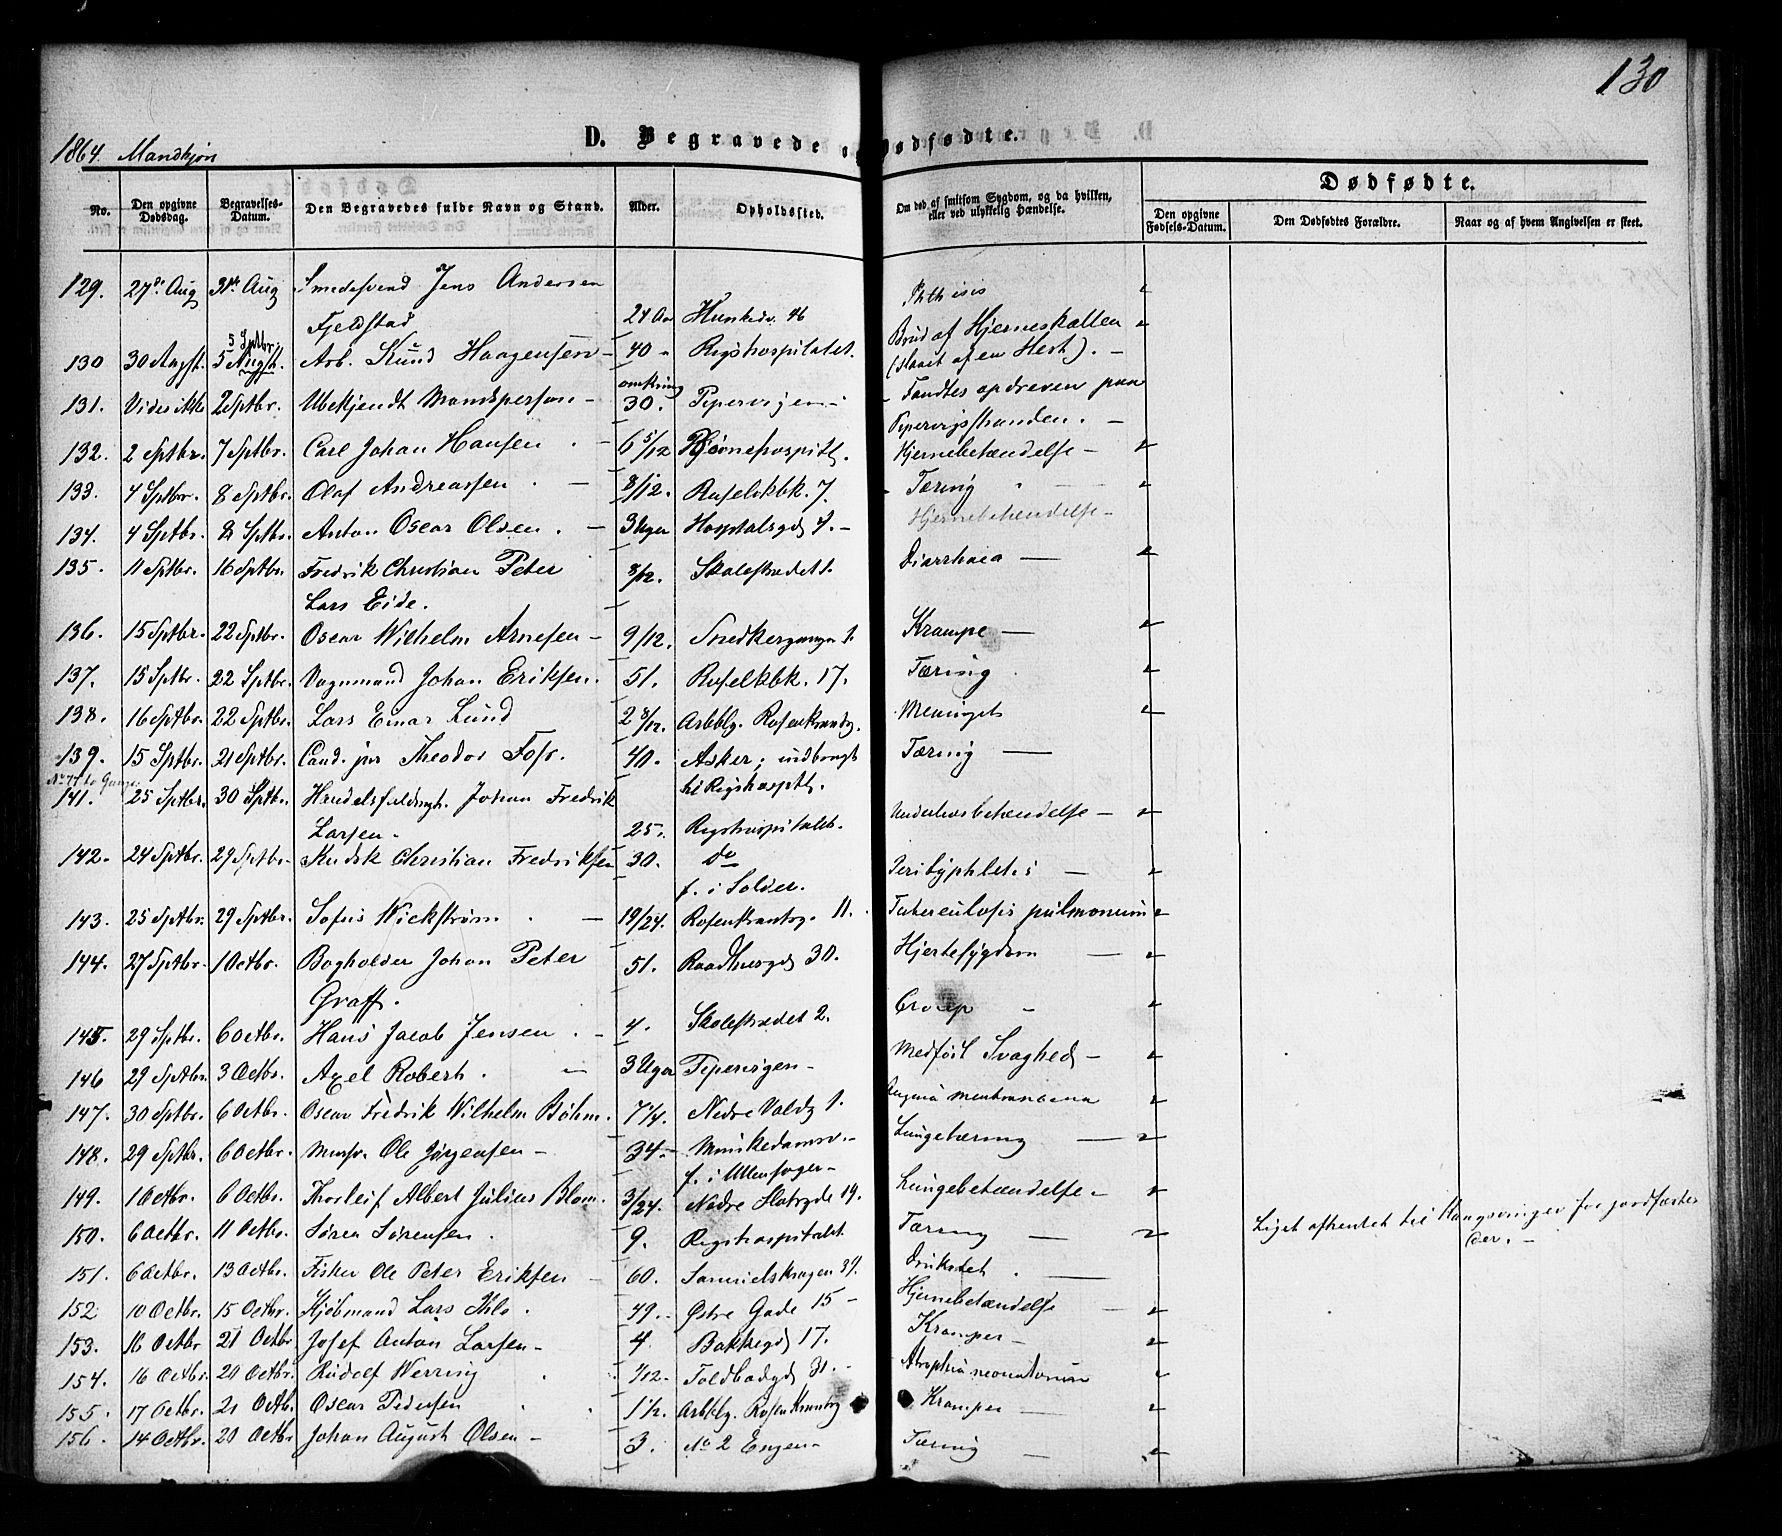 130
1864. Mandkjøn
D. Begravede o Dødfødte.
Dødfødte.
No. Den opgivne Dødsdag. Begravelses-Datum. Den Begravedes fulde Navn og Stand. Alder. Opholdssted. Om død af smitsom Sygdom, og da hvilken, eller ved ulykkelig Hændelse. Den opgivne Fødsels-Datum. Den Dødfødtes Forældre. Naar og af hvem Angivelsen er skeet.
129. 27de Aug 31te Aug Smedesvend Jens Andersen Phthisis
Fjeldstad 24 Aar Munkedv. 46
5 Sptbr. Brud af Hjerneskallen
130 30 Augst. 5 Augst. Arb. Knud Haagensen - 40 - Rigshospitalet. (slaaet af en Hest). -
131. Vides ikke 2 Septbr. Ubekjendt Mandsperson - omkring 30. Pipervigen - Fandtes opdreven paa
Pipervigstranden. -
132. 2 Sptbr. 7 Sptbr. Carl Johan Hansen . - 6 5/12 Børnehospitl. Hjernebetændelse -
133. 4 Sptbr. 8 Sptbr. Olaf Andreassen . - 8/12. Ruselkbk. 7. Tæring
134. 4 Sptbr. 8 Sptbr. Anton Oscar Olsen . - 3 Uger Hospitalsgd 4. - Hjernebetændelse -
135. 11 Sptbr. 16 Sptbr. Fredrik Christian Peter 8/12. Skolestrædet 1. Diarrhoea -
Lars Eide.
136. 15 Sptbr. 22 Sptbr. Oscar Wilhelm Arnesen - 9/12. Snedkergangen 1. Krampe -
137. 15 Sptbr. 22 Sptbr. Vognmand Johan Eriksen. 51. Ruselkbk. 17. Tæring
138. 16 Sptbr. 22 Sptbr. Lars Einar Lund 2 8/12. Arbblg. Rosenkrandzg. Meningit
139. 15 Sptbr. 21 Sptbr. Cand. jur Theodor Foss. 40. Asker; indbragt Tæring -
til Rigshosptl.
141. 25 Sptbr. 30 Sptbr. Handelsfuldmgt. Johan Fredrik Underlivsbetændelse -
Larsen - 25. Rigshospitalet.
142. 24 Sptbr. 29 Sptbr. Kudsk Christian Fredriksen 30. do Perityphlitis -
f. i Soløer.
143. 25 Sptbr. 29 Sptbr. Sofus Wickstrøm . - 19/24. Rosenkrantzg. 11. Tuberculosis pulmonum
144. 27 Sptbr. 1 Octbr. Bogholder Johan Peter 51. Raadhusgd 30. Hjertesygdom -
Graff.
145. 29 Sptbr. 6 Octbr. Hans Jacob Jensen . - 4. Skolestrædet 2. Croup -
146 29 Sptbr. 3 Octbr. Axel Robert . - 3 Uger Pipervigen - Medfødt Svaghed -
147. 30 Sptbr. 6 Octbr. Oscar Fredrik Wilhelm Bøhm. 7 1/4. Nedre Voldg 1. Angina membranacea
148. 29 Sptbr. 6 Octbr. Mursv. Ole Jørgensen - 34. - Munkedamsv. - Lungetæring -
f. i Ullensager -
149. 1 Octbr. 6 Octbr. Thorleif Albert Julius Blom. 3/24. Nedre Slotsgde 19. Lungebetændelse -
150. 6 Octbr. 11 Octbr. Søren Sørensen . 9. Rigshospitalet Tæring - Liget afhentet til Kongsvinger for jordfæstes
der. -
151. 6 Octbr. 13 Octbr. Fisker Ole Peter Eriksen - 60. Samuelskrogen 31. Druknet . -
152 10 Octbr. 15 Octbr. Kjøbmand Lars Ihle . 49. Østre Gade 15 - Hjernebetændelse -
153. 16 Octbr 21 Octbr Josef Anton Larsen - 4 Bakkegd 17. Kramper -
154. 16 Octbr. 20 Octbr Rudolf Werring . 1/12. Toldbodgd 31. - Atrophia neonatorum
155. 17 Octbr. 21 Octbr. Oscar Pedersen . 1 1/2. Arbblg. Rosenkrantzg Kramper -
156. 14 Octbr. 20 Octbr Johan August Olsen - 3. No 2 Engen - Tæring -